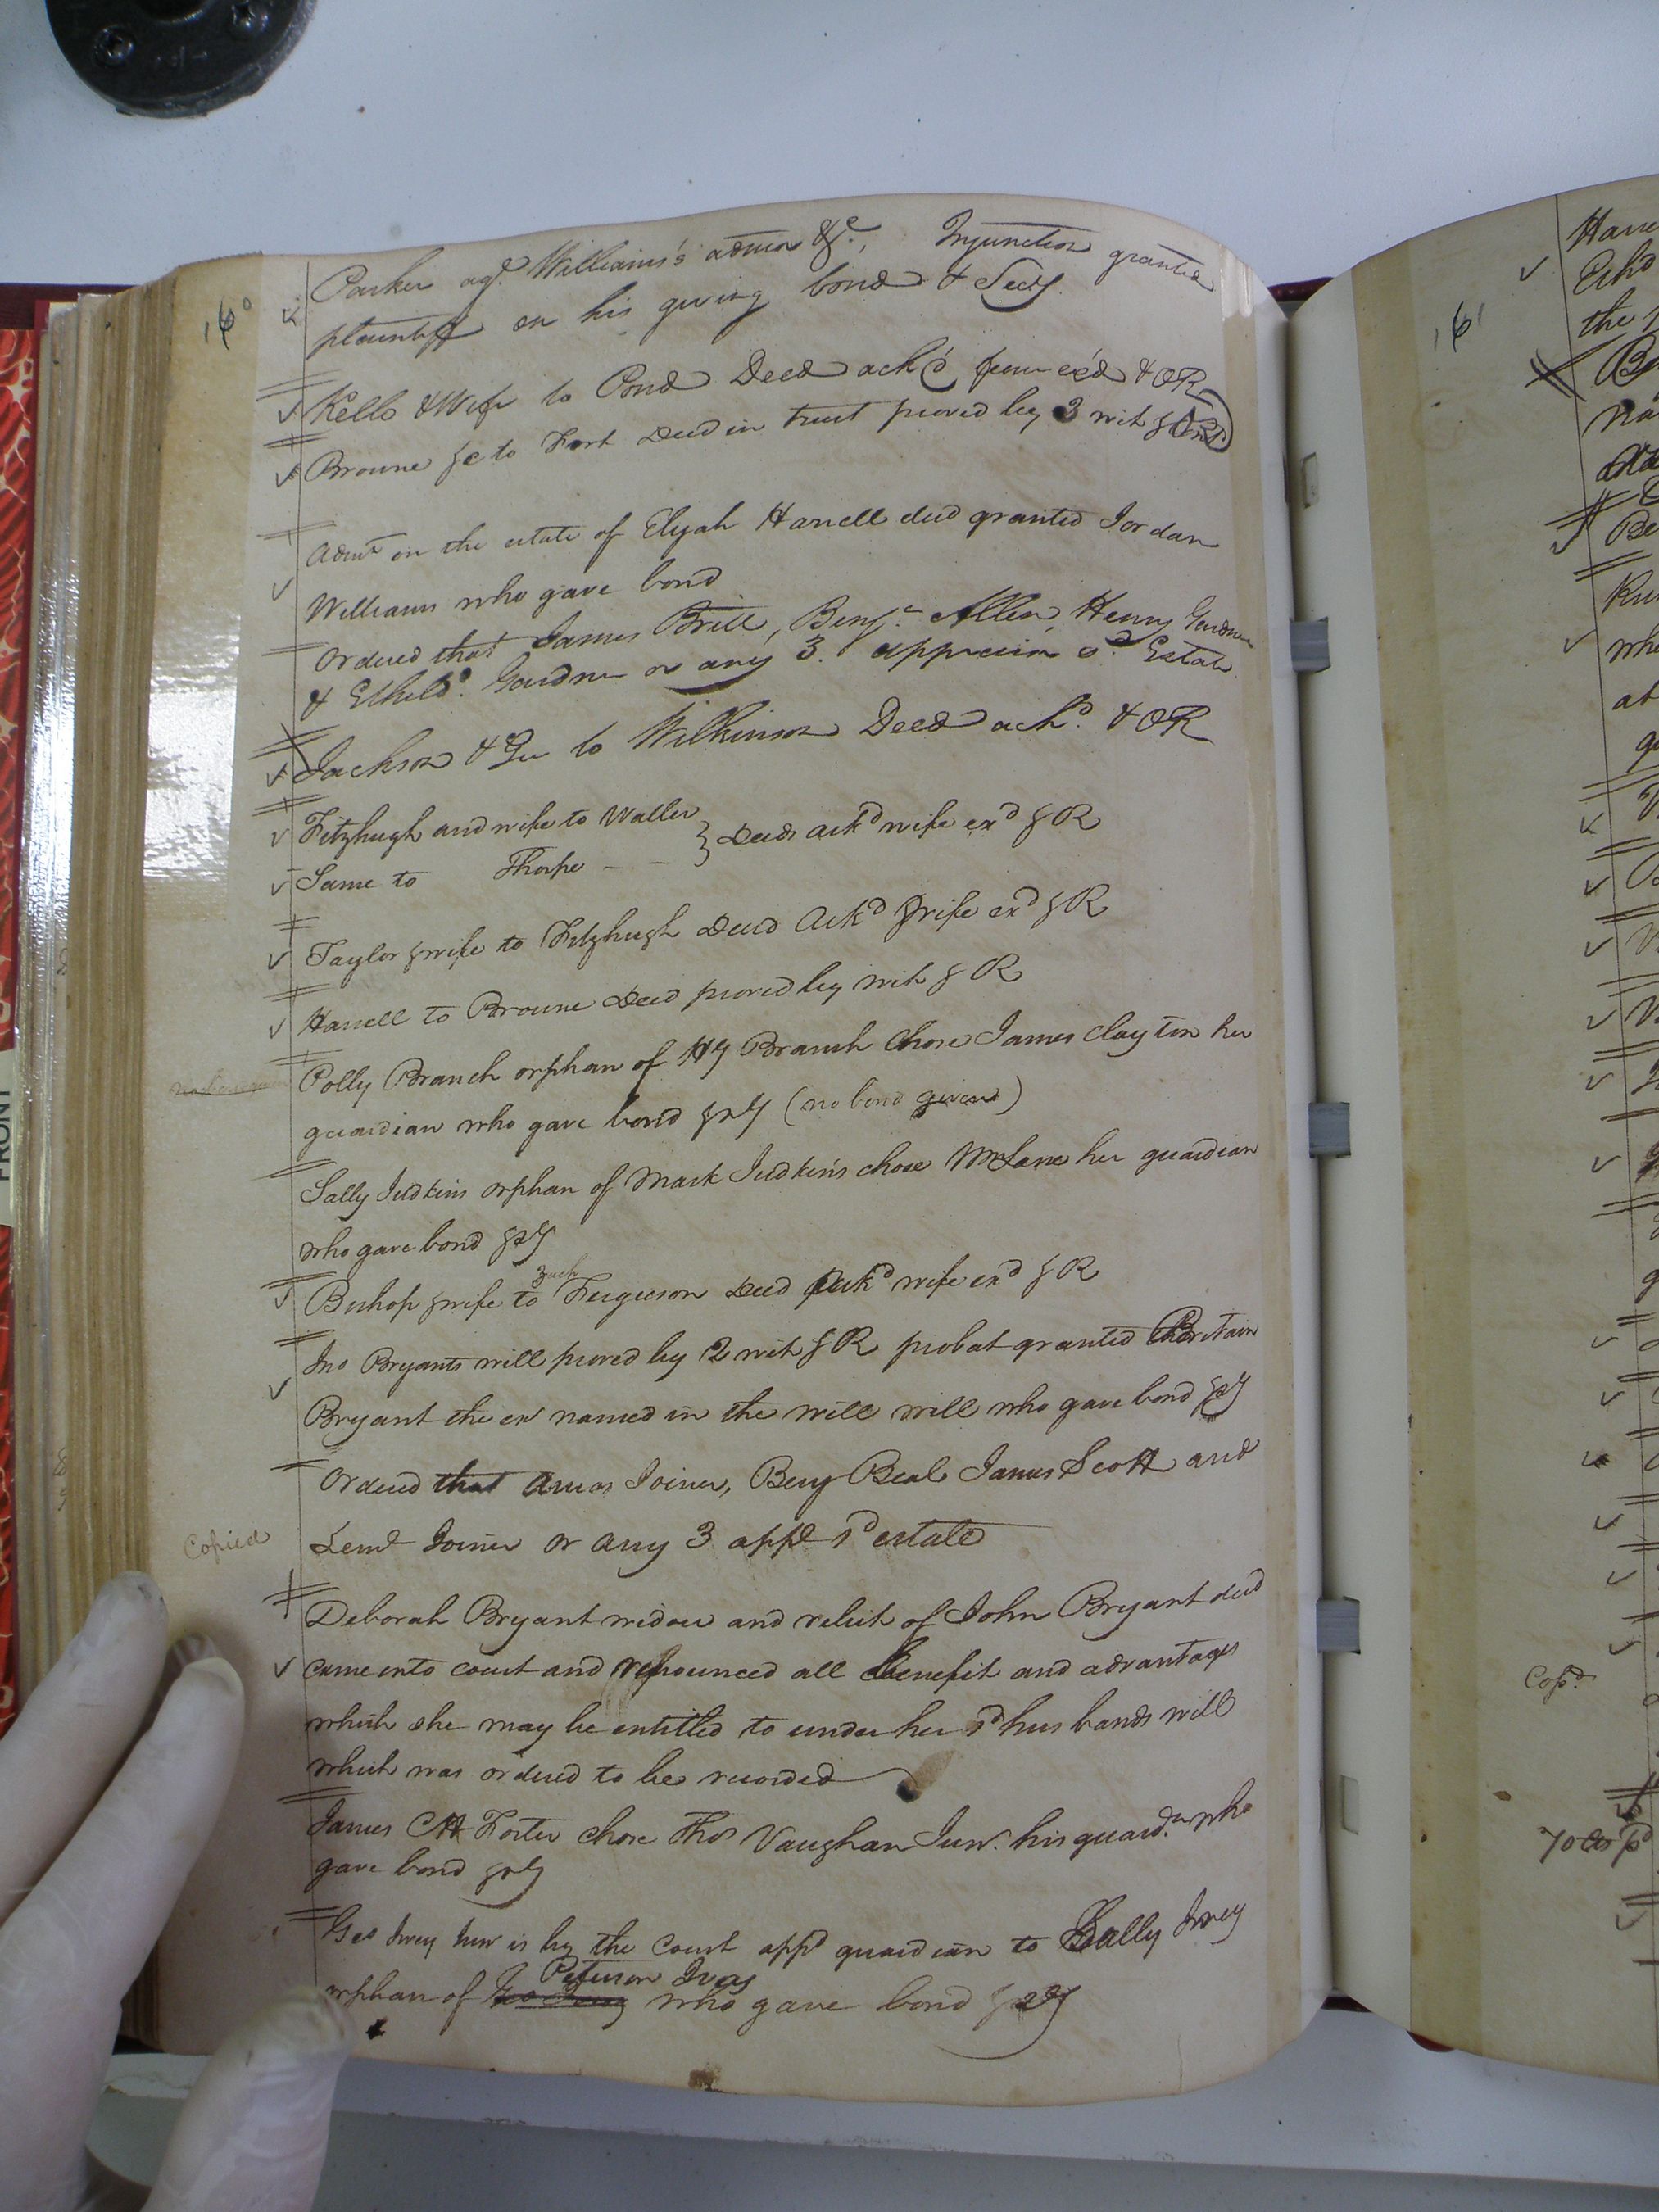 160
Parker agt. Williams's admor &c., Injunction granted
plaintiff on his giving bond & Secy.
Kello & Wife to Pond Deed ack'd feme ex'd & OR
Browne &c to Fort Deed in trust proved by 3 wit &
Admn on the estate of Elijah Harrell decd granted Jordan
Williams who gave bond
Ordered that James Britt, Benjn Allen, Henry Gardner
& Etheldd. Gardner or any 3. appraise sd Estate
Jackson & to Wilkinson Deed ackd. & OR
Fitzhugh and wife to Waller
Same to Thorpe } Deeds ackd wife exd & R
Taylor & wife to Fitzhugh Deed Ackd & wife exd & R
Harrell to Browne Deed proved by wit & R
Polly Branch orphan of Hy Branch Chose James Clayton her
guardian who gave bond &c (no bond given)
Sally Judkins orphan of Mark Judkins chose Wm Lane her guardian
who gave bond &c
Zach
Bishop & wife to Ferguson Deed Ackd wife exd & R
Jno Bryants will proved by 2 wit & R probat granted Britain
Bryant the exr named in the will will who gave bond &c
Ordered that Amos Joiner, Benj Beal James Scott and
Copied
Leml Joiner or any 3 appe sd estate
Deborah Bryant widow and relict of John Bryant decd
came into court and renounced all benefit and advantages
which she may be entitled to under her sd husbands will
which was ordered to be recorded
James CH Foster chose Thos Vaughan Junr. his guardn who
gave bond &c
Geo Ivey Junr is by the Court appd guardian to Sally Ivey
Peterson Ivey
orphan of who gave bond &c
161
Hare
Ackd
the
Be
wh
at
Copd.
70 cts pd